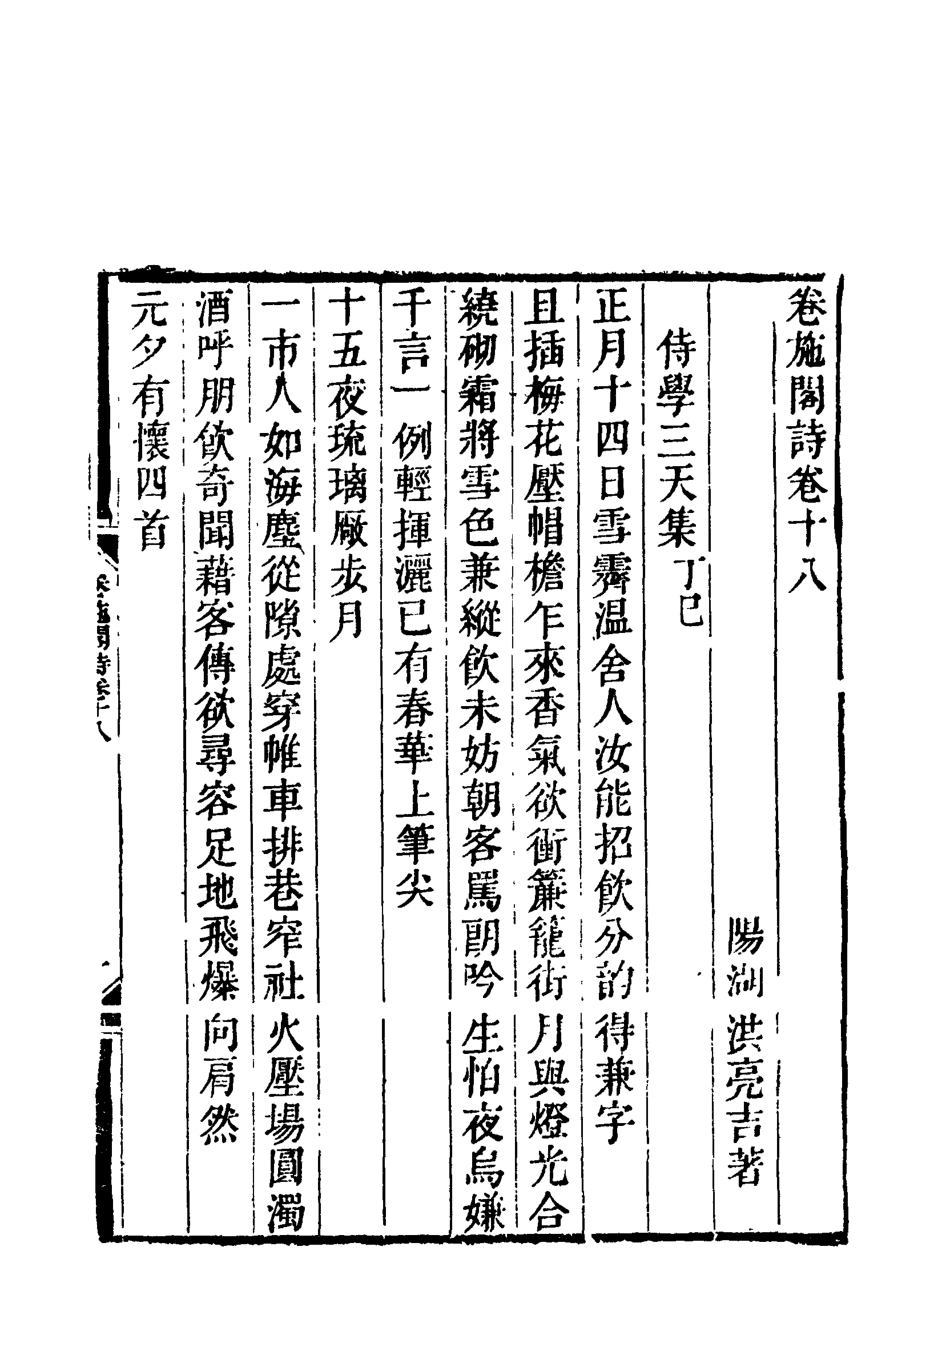 卷施閣詩卷十八
陽湖洪亮吉著
侍學三天集丁巳
正月十四日雪霽温舍人汝能招飲分韵得兼字
且插梅花壓帽檐乍來香氣欲衝簾籠街月與燈光合
繞砌霜將雪色兼縱飲未妨朝客罵朗吟生怕夜烏嫌
千言一例輕揮灑已有春華上筆尖
十五夜琉璃厰步月
一市人如海塵從隙處穿帷車排巷窄社火壓場圓濁
酒呼朋飲奇聞藉客傳欲尋容足地飛爆向肩然
元夕有懷四首
卷施閣詩卷十八